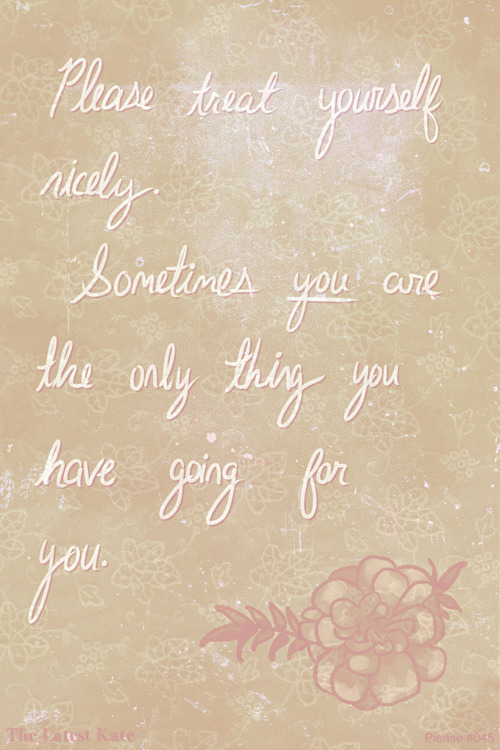 Please treat yourself
nicely.
Sometimes you are
the only thing you
have going for
you.
The Latest Kate
Please #045